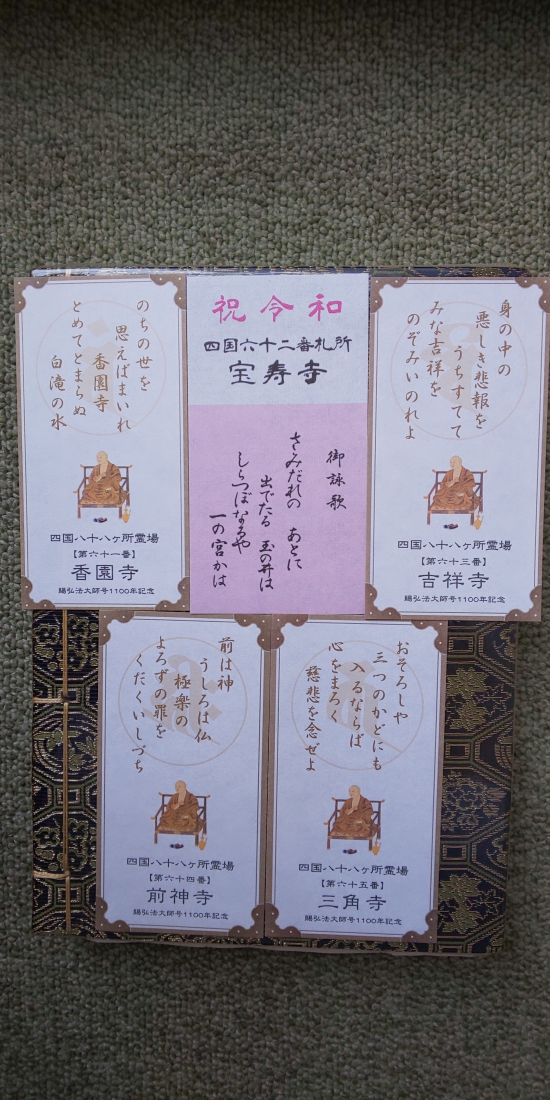 のちの世を
思えばまいれ
香園寺
とめてとまらぬ
白滝の水
四国八十八ヶ所霊場
【第六十一番】
香園寺
賜弘法大師号1100年記念
祝令和
四国六十二番札所
宝寿寺
御詠歌
さみだれの あとに
出でたる 玉の井は
しらつぼなるや
一の宮かは
身の中の
悪しき悲報を
うちすてて
みな吉祥を
のぞみいのれよ
四国八十八ヶ所霊場
【第六十三番】
吉祥寺
賜弘法大師号1100年記念
前は神
うしろは仏
極楽の
よろずの罪を
くだくいしづち
四国八十八ヶ所霊場
【第六十四番】
前神寺
賜弘法大師号1100年記念
おそろしや
三つのかどにも
入るならば
心をまろく
慈悲を念ぜよ
四国八十八ヶ所霊場
【第六十五番】
三角寺
賜弘法大師号1100年記念